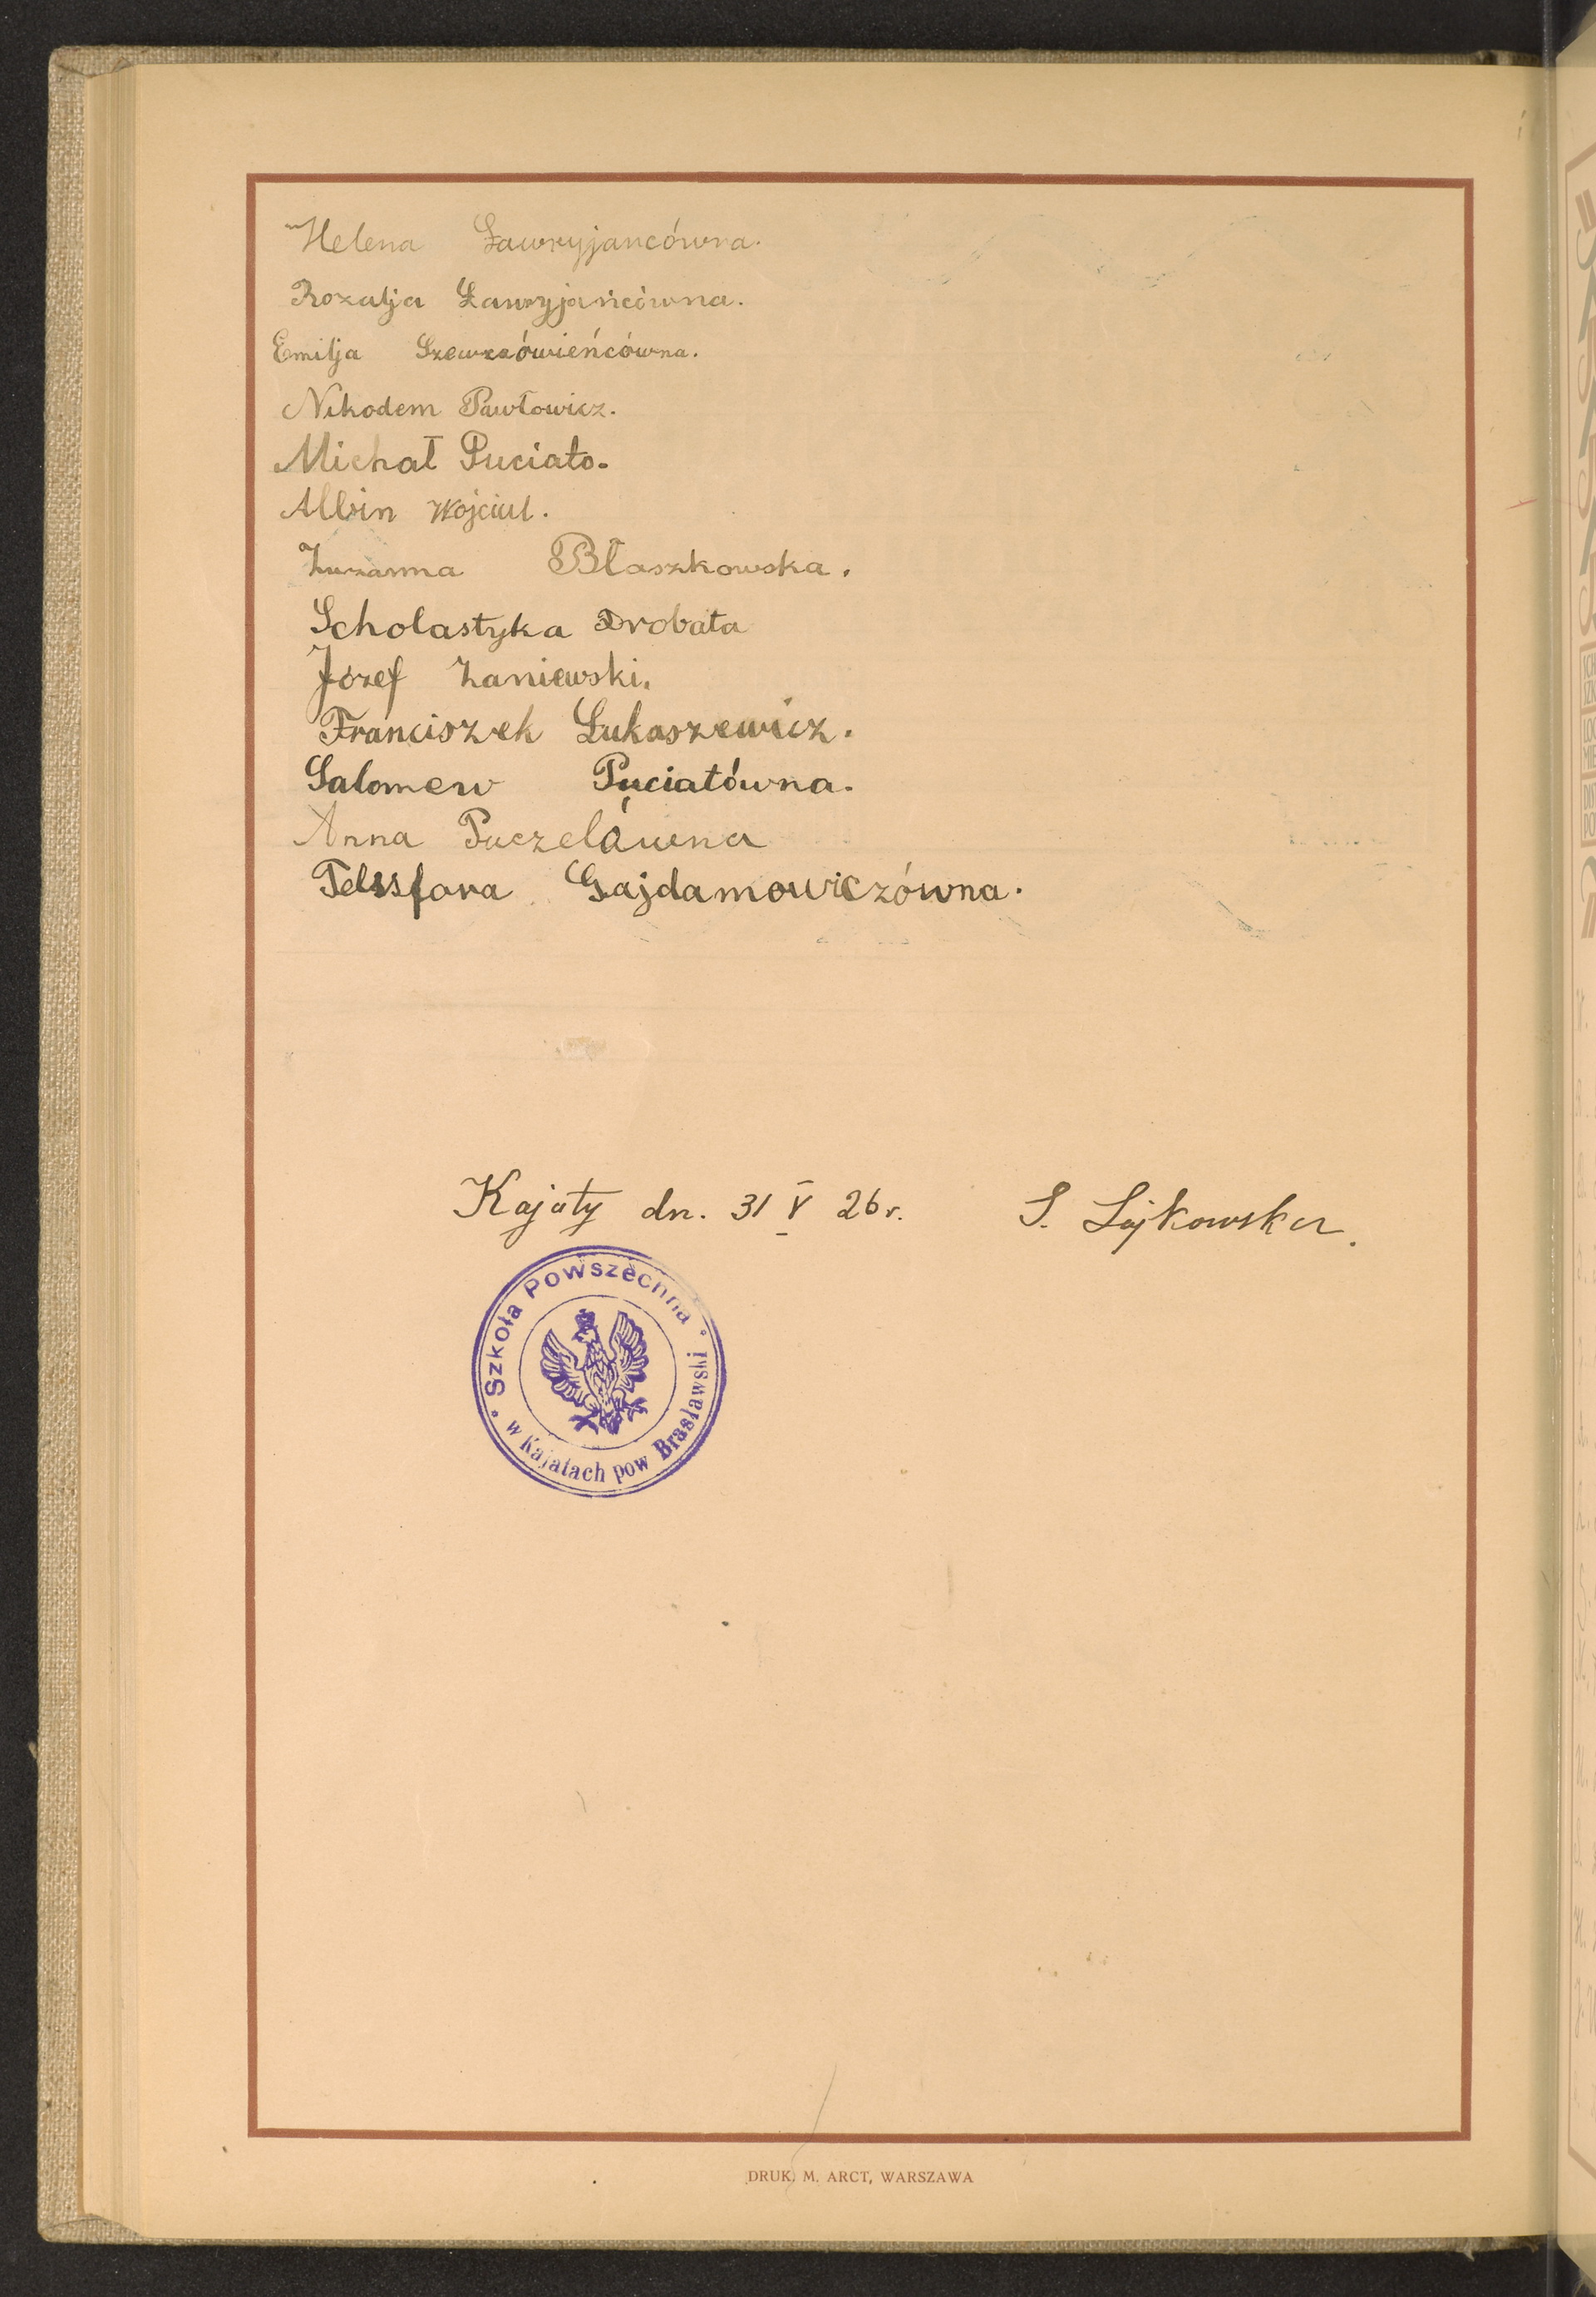 Helena Ławryjancówna.
Rozalja Ławryjańcówna.
Emilja Szewczówieńcówna.
Nikodem Pawłowicz.
Michał Puciato.
Albin Wojciul.
Zuzanna Błaszkowska.
Scholastyka Drobata
Józef Zaniewski.
Franciszek Łukaszewicz.
Salomea Puciatówna.
Anna Puczelówna
Telesfora Gajdamowiczówna.
Kajaty dn. 31 V 26 r. S. Łajkowska.
Szkoła Powszechna
w Kajatach pow Brasławski
DRUK. M. ARCT, WARSZAWA